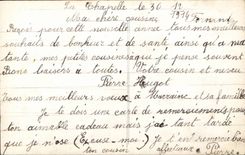 La Chapelle le 30 12 1974
Ma chère cousine Fernande
Reçois pour cette nouvelle année tous mes meilleurs
souhaits de bonheur et de santé ainsi qu'à ma
tante, mes petits cousins que je pense souvent
Bons baisers à toutes. Votre cousin et neveu
Pierre Huget
Tous mes meilleurs vœux à et sa famille
Je te dois une carte de remerciements pour
ton aimable cadeau mais j'ai tant tardé
que je n'ose (Excuse-moi) Je t'en remercie bien
ton cousin affectueux Pierre